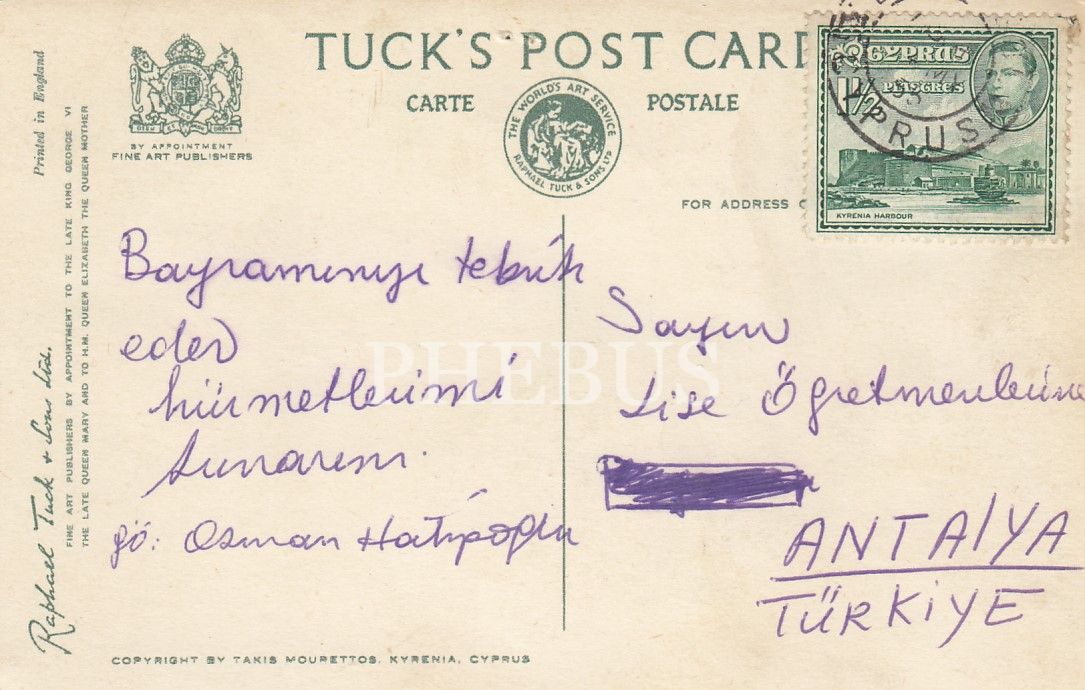 TUCK'S POST CARD
CARTE POSTALE
BY APPOINTMENT
FINE ART PUBLISHERS
THE WORLD'S ART SERVICE
RAPHAEL TUCK & SONS LTD
FOR ADDRESS O
CYPRUS
1½ PIASTRES
KYRENIA HARBOUR
CYPRUS
55
Printed in England
Raphael Tuck & Sons Ltd.
FINE ART PUBLISHERS BY APPOINTMENT TO THE LATE KING GEORGE VI
THE LATE QUEEN MARY AND TO H.M. QUEEN ELIZABETH THE QUEEN MOTHER
Bayramınızı tebrik
eder
hürmetlerimi
sunarım.
gö: Osman Hatipoğlu
Sayın
Lise Öğretmenlerine
ANTALYA
TÜRKİYE
PHEBUS
COPYRIGHT BY TAKIS MOURETTOS, KYRENIA, CYPRUS